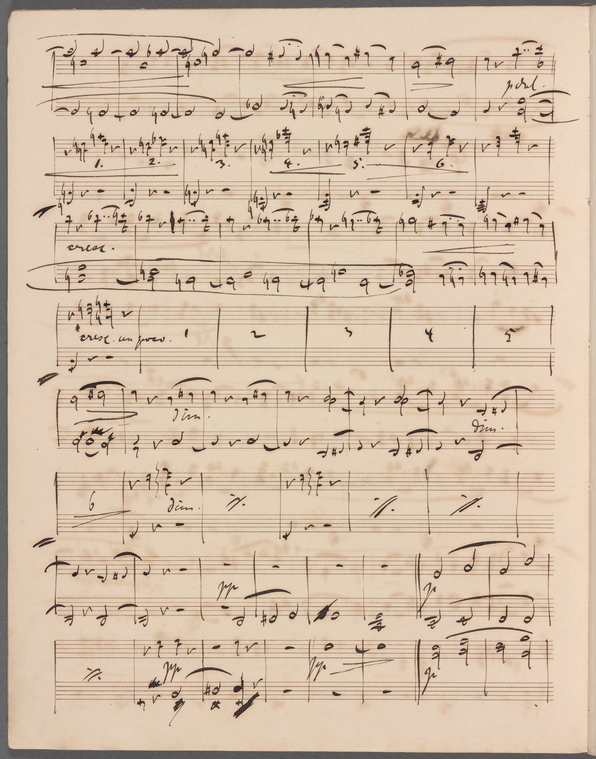 1. 2. 3. 4. 5. 6.
cresc.
cresc. un poco. 1 2 3 4 5
dim.
dim.
6 dim.
pp p
pp pp p